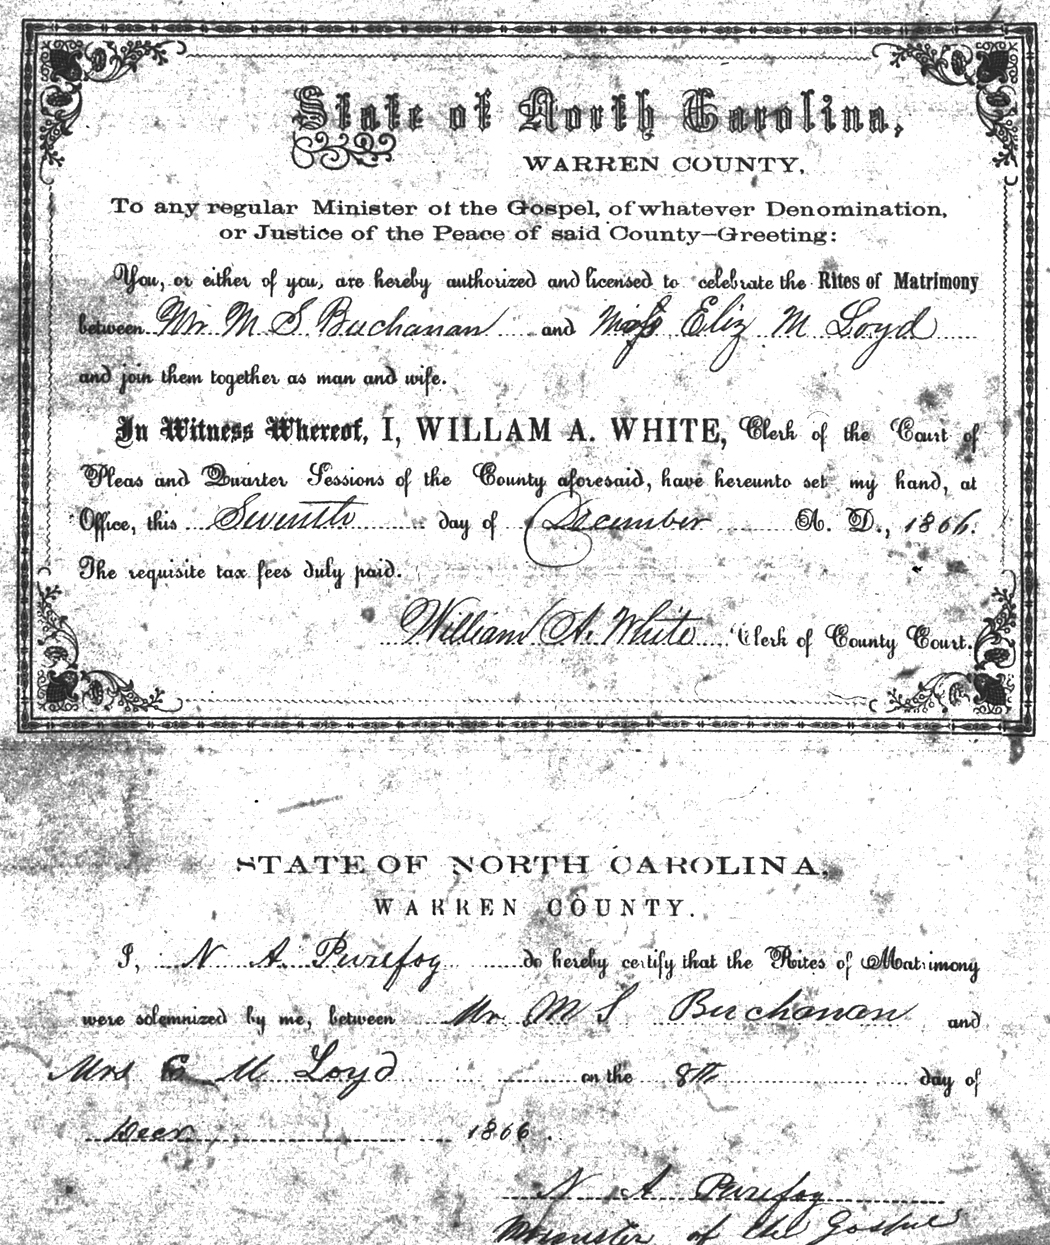 State of North Carolina,
WARREN COUNTY.
To any regular Minister of the Gospel, of whatever Denomination,
or Justice of the Peace of said County—Greeting:
You, or either of you, are hereby authorized and licensed to celebrate the Rites of Matrimony
between Mr M S Buchanan and Miss Eliz M Loyd
and join them together as man and wife.
In Witness Whereof, I, WILLAM A. WHITE, Clerk of the Court of
Pleas and Quarter Sessions of the County aforesaid, have hereunto set my hand, at
Office, this Seventh day of December A. D., 1866.
The requisite tax fees duly paid.
William A. White Clerk of County Court.
STATE OF NORTH CAROLINA,
WARREN COUNTY.
I, N A Purefoy do hereby certify that the Rites of Matrimony
were solemnized by me, between Mr M S Buchanan and
Mrs E M Loyd on the 8th day of
Decr 1866.
N A Purefoy
Minister of the Gospel